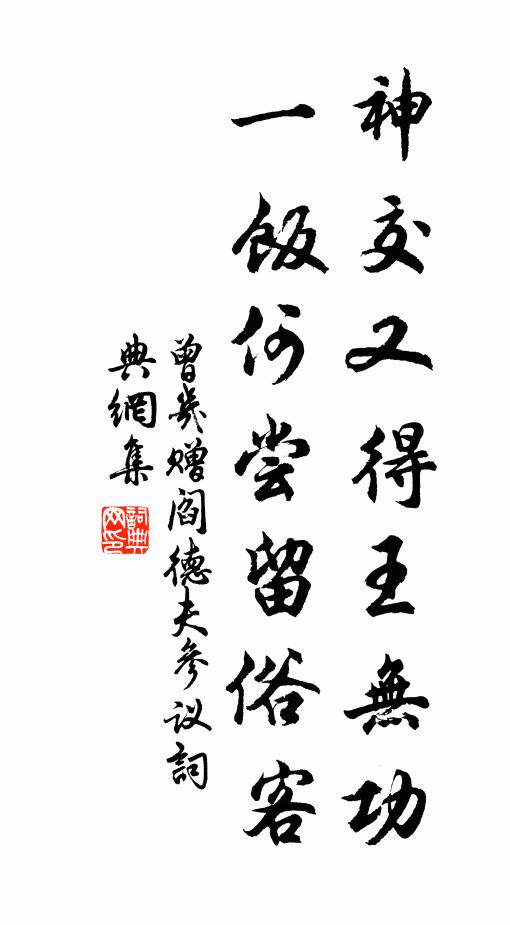 神交又得王無功
一飯何尝留俗客
曾幾赠閻德夫参议詞
典網集
詞典
网印